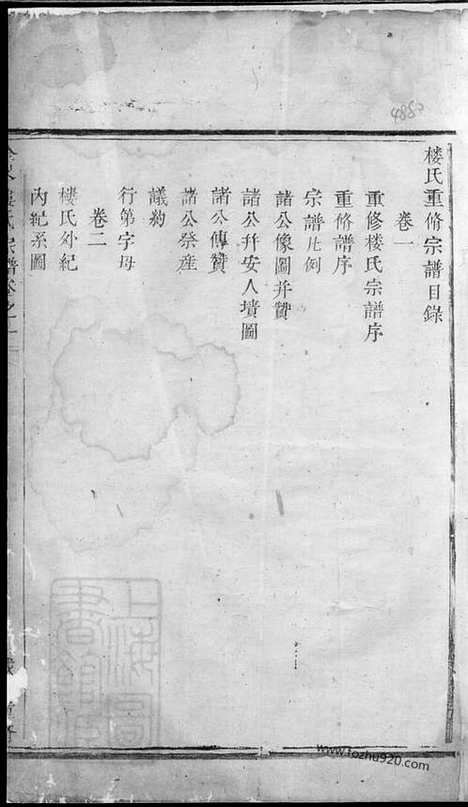 楼氏重脩宗譜目錄
卷一
重修楼氏宗譜序
重脩譜序
宗譜凡例
諸公像圖并贊
諸公并安人墳圖
諸公傳贊
諸公祭産
議約
行第字母
卷二
楼氏外紀
内紀系圖
上海圖書館
www.fozhu920.com